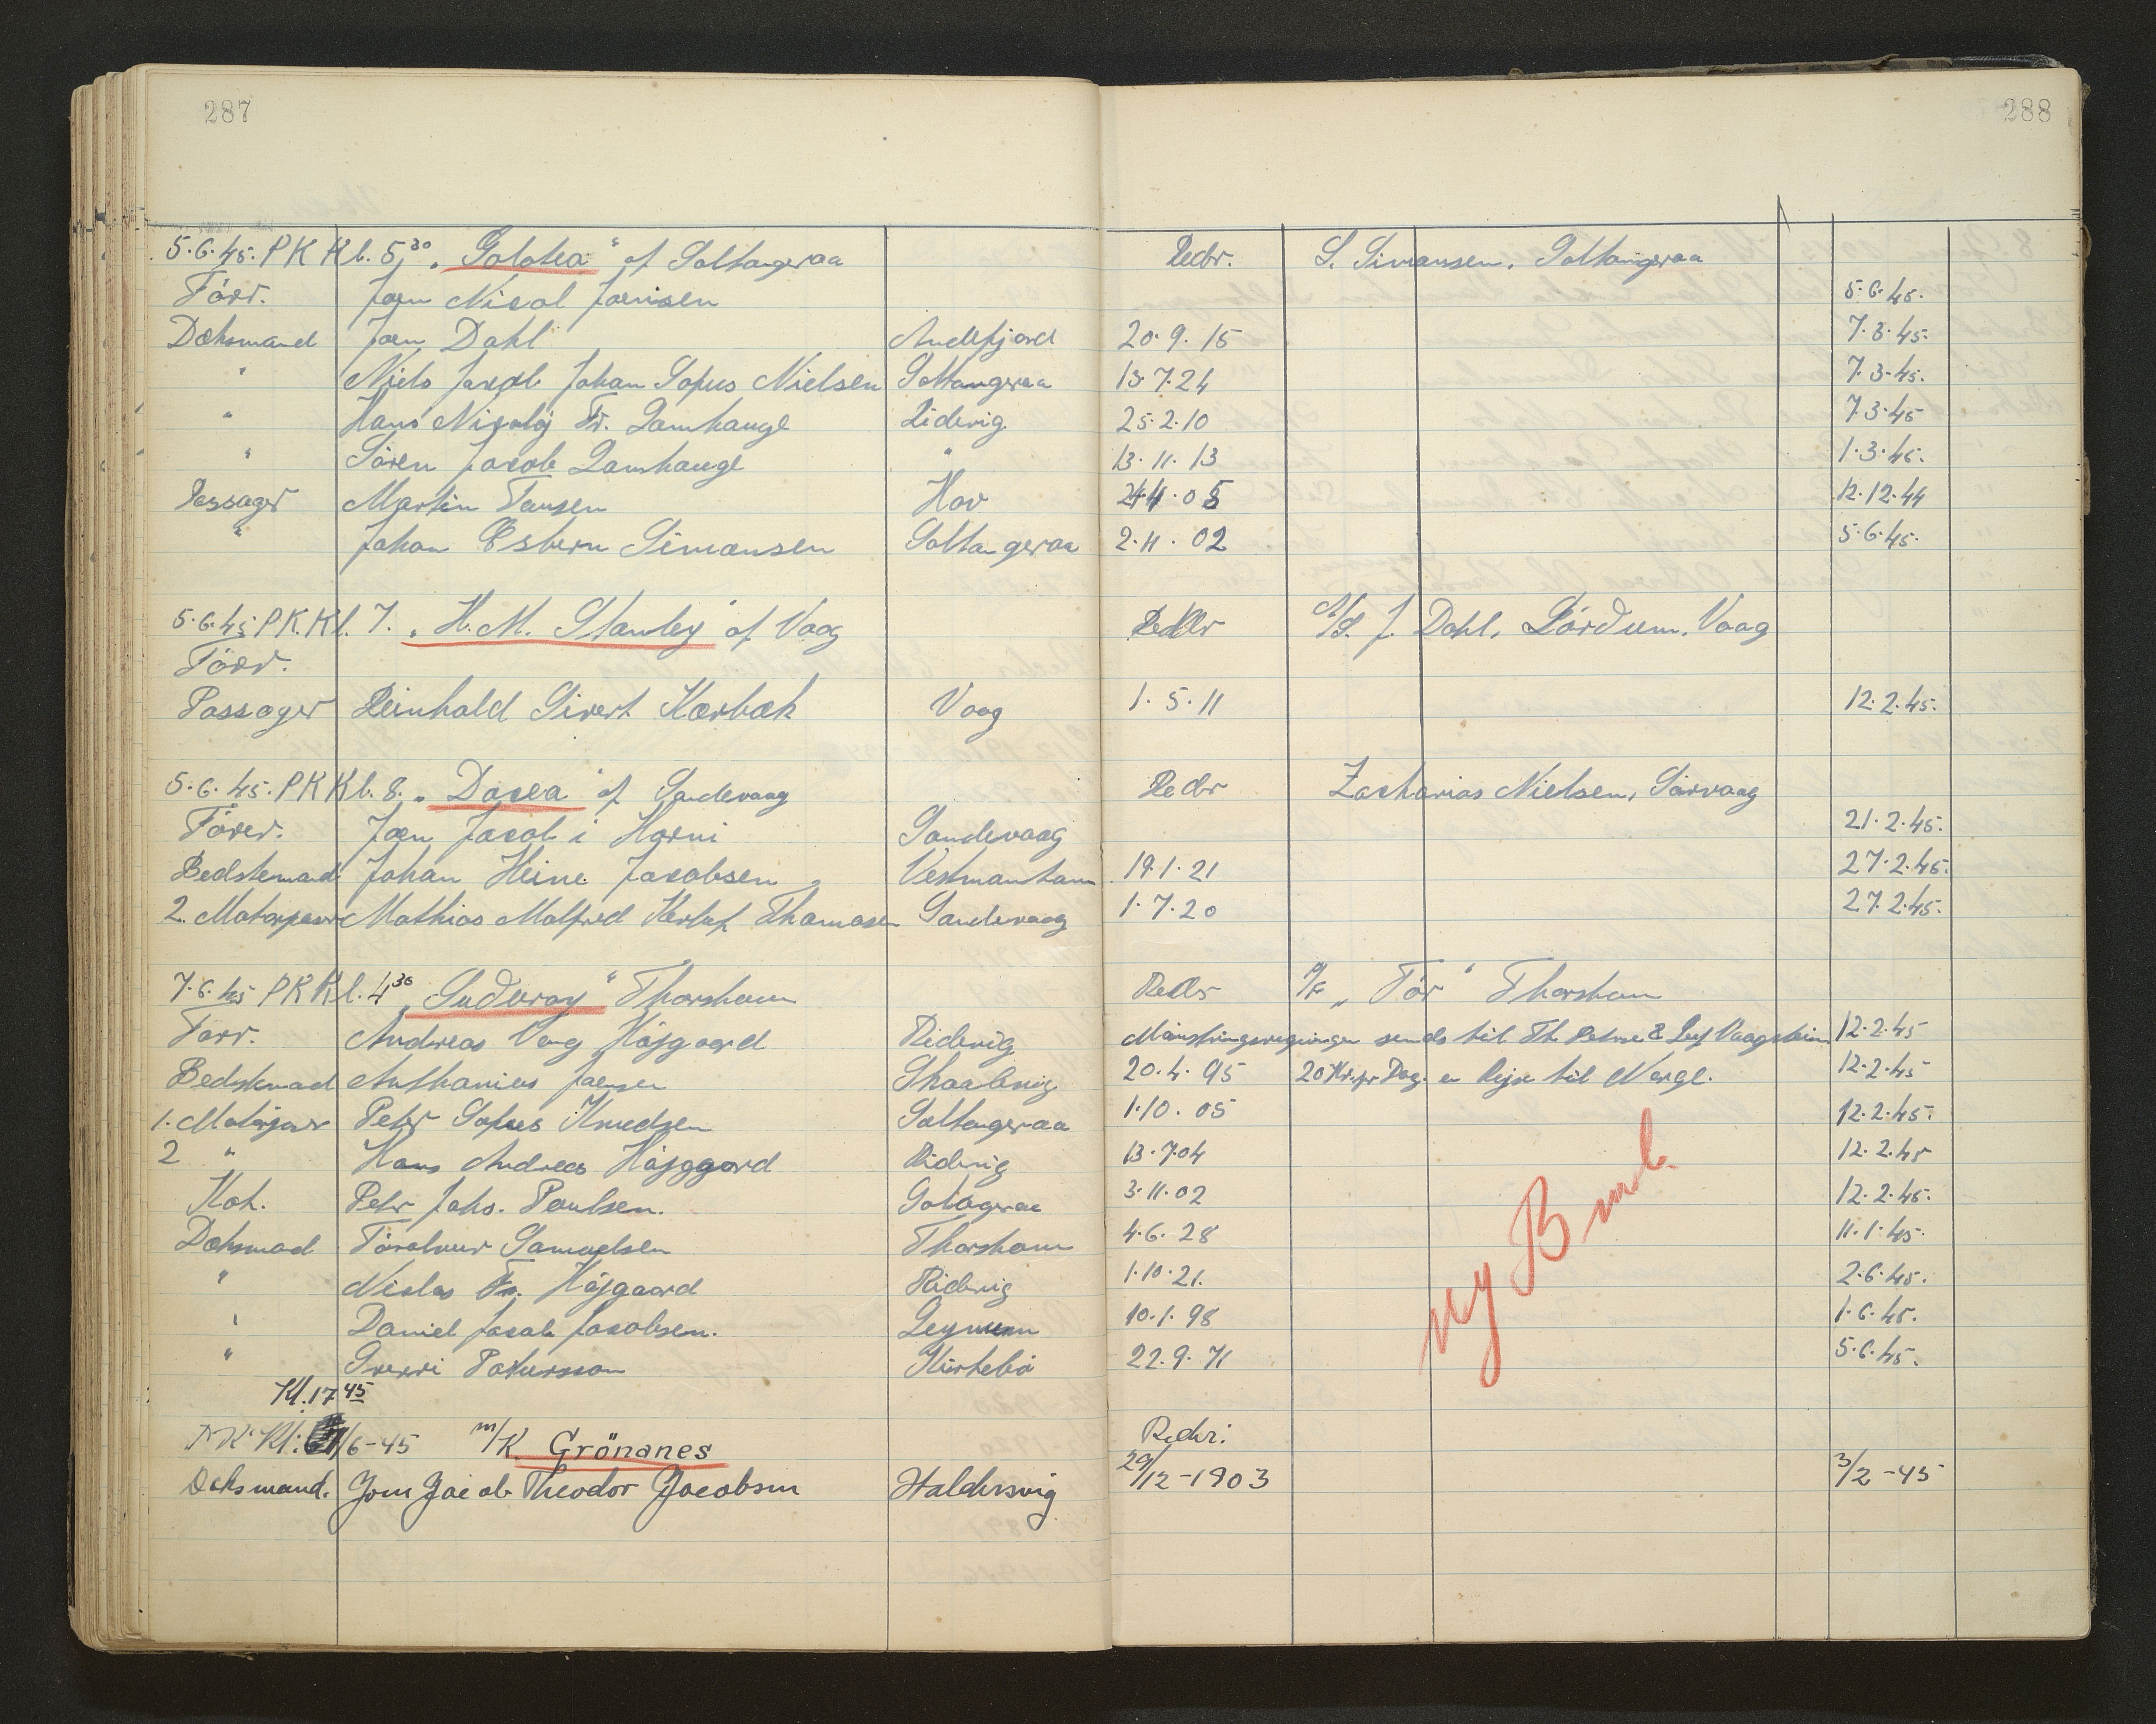 287
288
5.6.45. P K Kl. 5,30 „Galatea“ af Saltangeraa Reder. S. Simonsen, Saltangeraa
Förr. Joen Nicol Joensen 5.6.45.
Dæksmand Joen Dahl Andefjord 20.9.15 7.3.45.
" Niels Jacob Johan Sofus Nielsen Saltangeraa 13.7.24 7.3.45.
" Hans Nicolaj Fr. Lamhauge Ridevig 25.2.10 7.3.45
" Sören Jacob Lamhauge " 13.11.13 1.3.45.
Passager Martin Tausen Hov 24.4.05 12.12.44
" Johan Esbern Simonsen Saltangeraa 2.11.02 5.6.45.
5.6.45 P.K. Kl. 7. „H.M. Stanley“ af Vaag Reder A/S. J. Dahl, Vaag
Förr.
Passager Reinhold Sivert Kærbæk Vaag 1.5.11 12.2.45.
5.6.45. P K Kl. 8. „Dacea“ af Sandevaag Reder Zacharias Nielsen, Sörvaag
Förer. Joen Jacob i Horni Sandevaag 21.2.45.
Bedstemand Johan Heine Jacobsen Vestmanhavn 19.1.21 27.2.45.
2. Motorpasser Mathias Malfred Thomasen Sandevaag 1.7.20 27.2.45.
7.6.45 P K Kl. 4,30 „Suduroy“ Thorshavn Reder P/F „Tór“ Thorshavn
Förr. Andreas Vang Höjgaard Ridevig sends til Th. & Leif Vaagstein 12.2.45
Bedstemad Anthanius Joensen Skaalevig 20.4.95 20 Kr. pr Dag. en Rejse til 12.2.45
1. Motorpasr Peter Sofus Knudsen Saltangeraa 1.10.05 12.2.45.
2 " Hans Andreas Höjggard Ridevig 13.7.04 12.2.45
Kok. Peter Johs. Poulsen. 3.11.02 12.2.45.
Dæksmad Tóralvur Samuelsen Thorshavn 4.6.28 11.1.45.
" Niclas Fr. Höjgaard Ridevig 1.10.21. 2.6.45.
" Daniel Jacob Jacobsen. Leynum 10.1.98 1.6.45.
" Sverri Patursson Kirkebö 22.9.71 5.6.45.
ny B
Kl. 17 45
P.K. Kl: /6-45 m/K. Grönanes Reder:
Dæksmand. Jom Jacob Theodor Jacobsen Haldersvig 29/12-1903 3/2-45